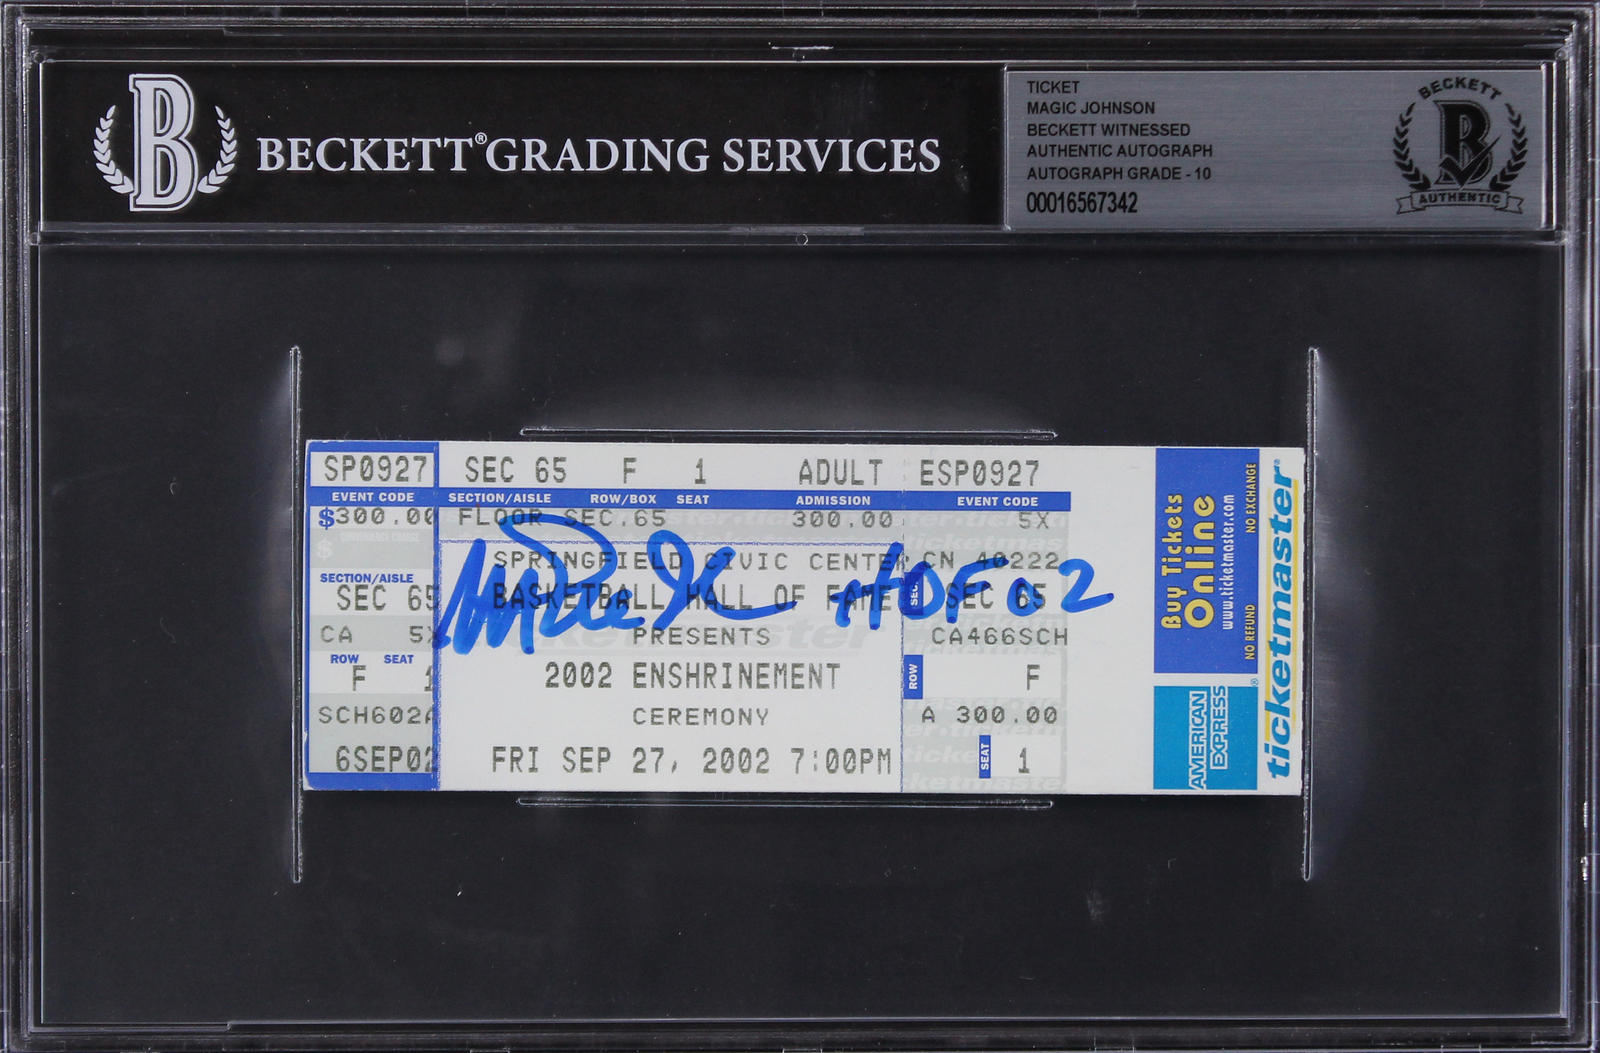 BECKETT® GRADING SERVICES
TICKET
MAGIC JOHNSON
BECKETT WITNESSED
AUTHENTIC AUTOGRAPH
AUTOGRAPH GRADE - 10
00016567342
BECKETT
B
AUTHENTIC
SP0927 SEC 65 F 1 ADULT ESP0927
EVENT CODE SECTION/AISLE ROW/BOX SEAT ADMISSION EVENT CODE
$300.00 FLOOR SEC.65 300.00 5X
$ CONVENIENCE CHARGE
SPRINGFIELD CIVIC CENTER CN 40222
SECTION/AISLE
SEC 65 BASKETBALL HALL OF FAME SEC. SEC 65
HOF 02
CA 5X PRESENTS CA466SCH
ROW SEAT
F 1 2002 ENSHRINEMENT ROW F
SCH602A CEREMONY A 300.00
6SEP02 FRI SEP 27, 2002 7:00PM SEAT 1
Buy Tickets
Online
www.ticketmaster.com
NO REFUND NO EXCHANGE
AMERICAN
EXPRESS
®
ticketmaster®